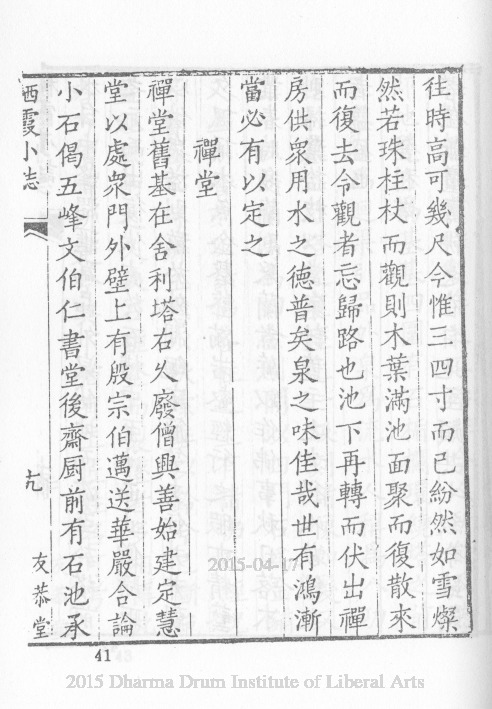 往時高可幾尺今惟三四寸而已紛然如雪燦
然若珠柱杖而觀則木葉滿池面聚而復散來
而復去令觀者忘歸路也池下再轉而伏出禪
房供衆用水之德普矣泉之味佳哉世有鴻漸
當必有以定之
禪堂
禪堂舊基在舍利塔右久廢僧興善始建定慧
堂以處衆門外壁上有殷宗伯邁送華嚴合論
小石偈五峰文伯仁書堂後齋厨前有石池承
栖霞小志
十九
友恭堂
41
2015-04-17
2015 Dharma Drum Institute of Liberal Arts